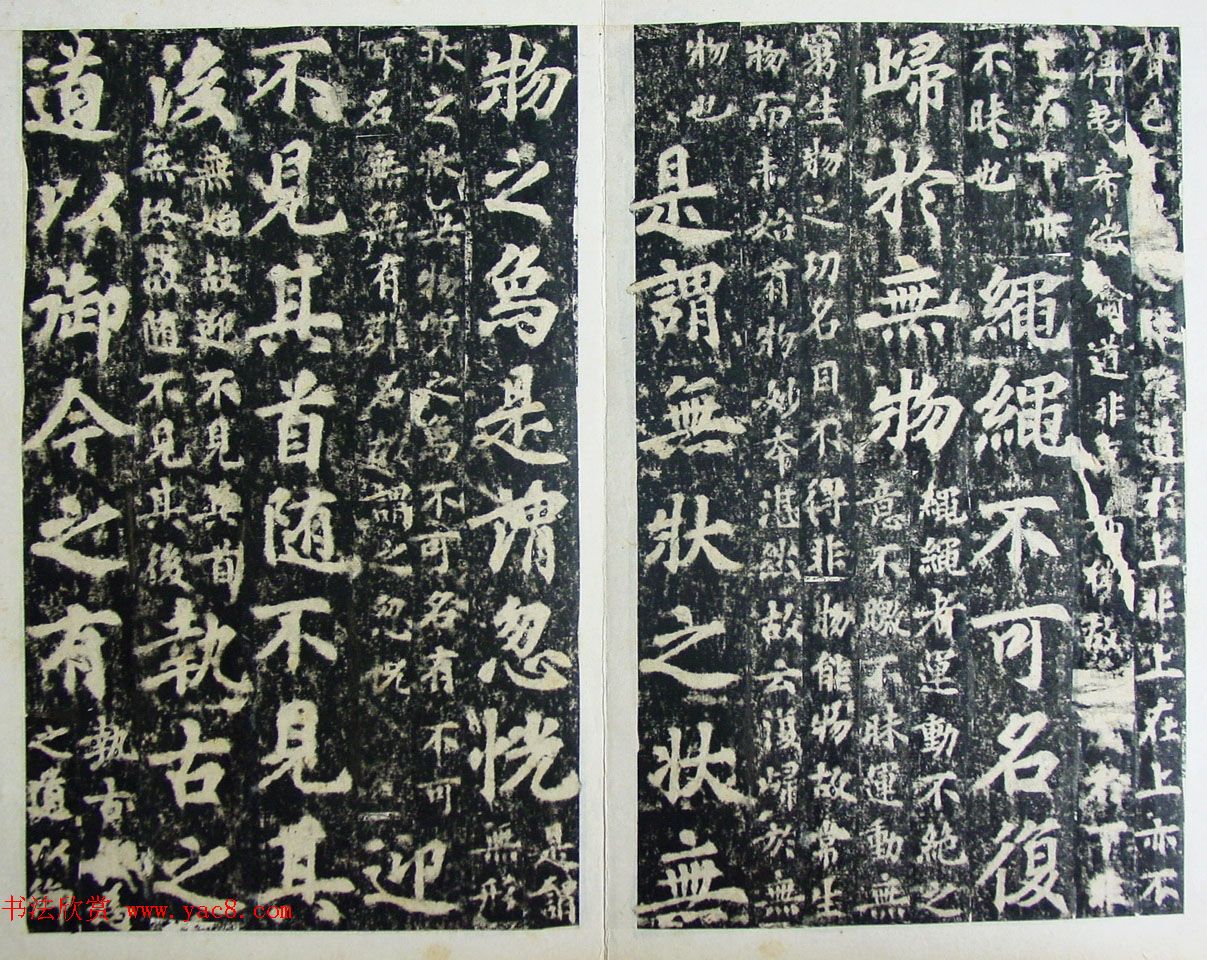 聲色昧道於上非上在上亦不
得夷希微道非故於下非
下在下亦
不昧也
繩繩不可名復
歸於無物
繩繩者運動不絶之
意不皦不昧運動無
窮生物之功名目不得非物能物故常生
物而未始有物妙本湛然故云復歸於無
物也
是謂無狀之狀無
物之為是謂忽恍
是謂
無形
狀之狀無物質之為不可名有不可
可名無無有難名故謂之忽恍
迎
不見其首隨不見其
後
無始故迎不見其首
無終故隨不見其後
執古之
道以御今之有
執古
之道以御
书法欣赏 www.yac8.com